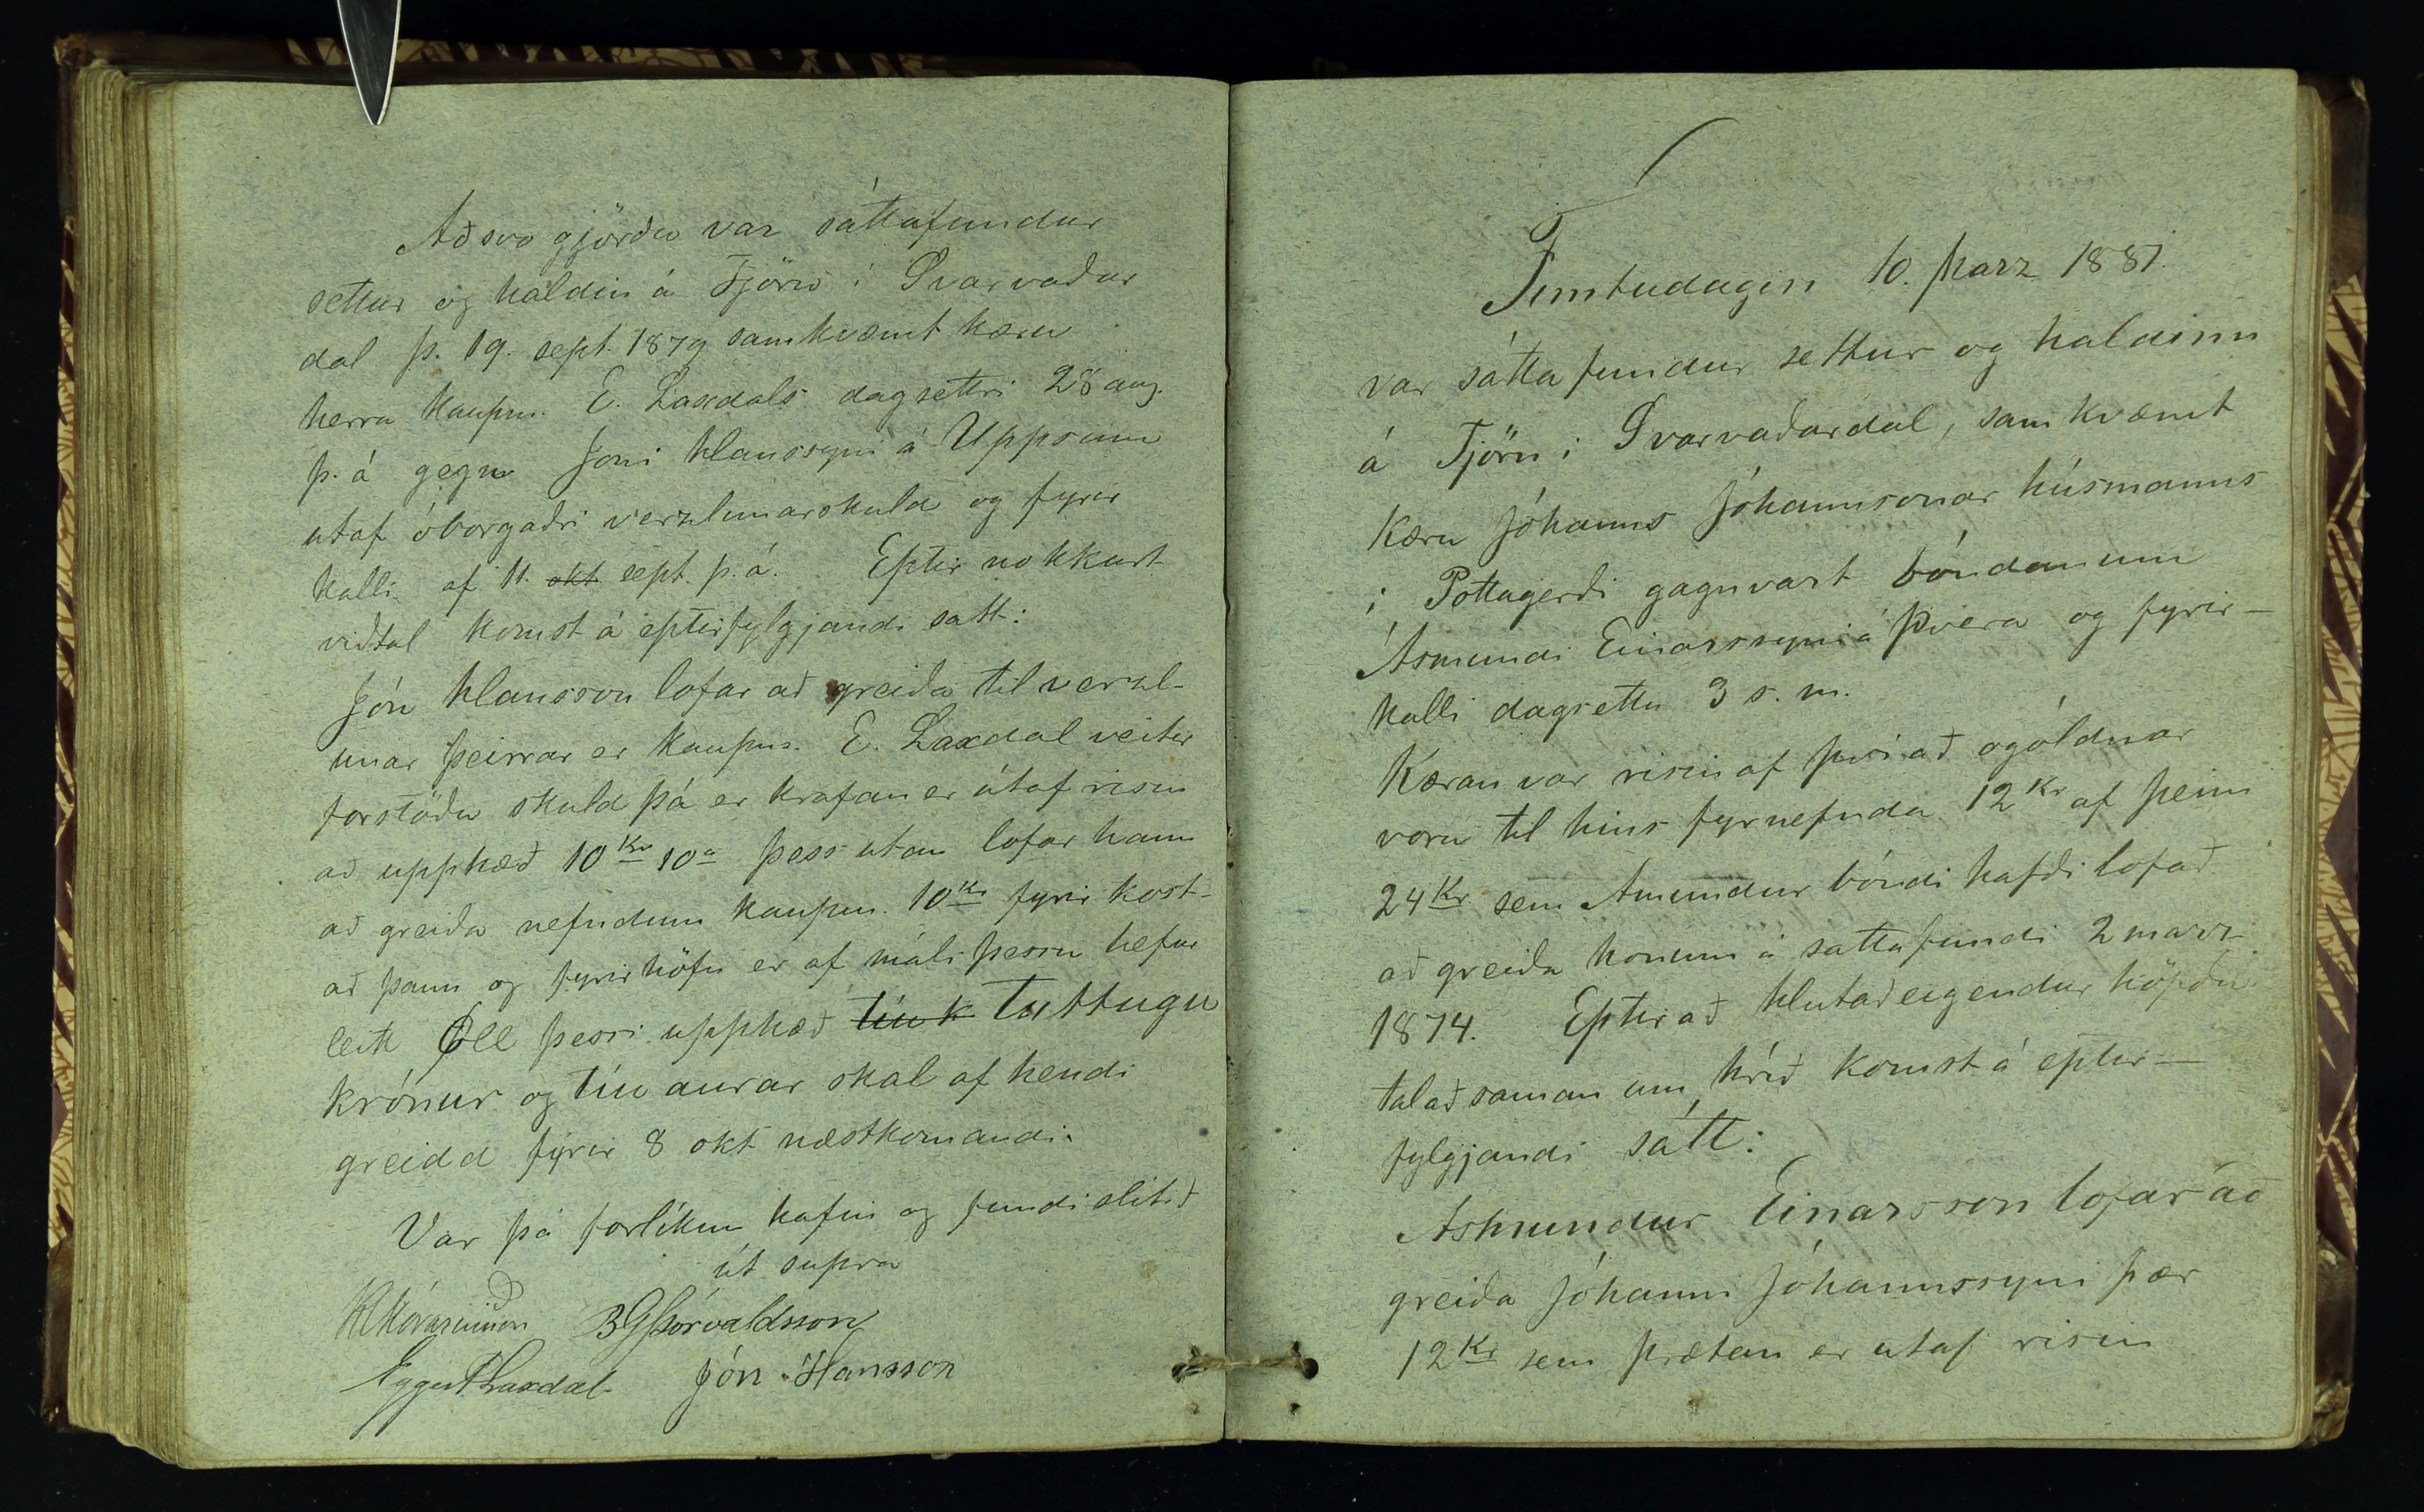 Að svo gjörðu var sáttafundur
settur og haldin á Tjörn í Svarvaður
dal þ. 19. sept. 1879 samkvæmt kæru
herra kaupm. E. Laxdals dagsettri 28 aug.
þ. á gegn Jóni Hanssyni á Uppsum
utaf óborgaðri verzlunarskuld og fyrir
kalli af 11. okt. sept. þ. á. Eptir nokkurt
viðtal komst á eptirfylgjandi satt:
Jón Hansson lofar að greiða til verzl-
unar þeirrar er kaupm. E. Laxdal veiter
forstöðu skuld þá er krafan er útaf risin
að upphæð 10 Kr 10 a þess utan lofar hann
að greiða nefndum kaupm. 10 Kr fyrir kost-
að þann og fyrirhöfn er af máli þessu hefur
leitt Öll þessi upphæð tíu k Tuttugu
krónur og tíu aurar skal af hendi
greidd fyrir 8 okt næstkomandi.
Var þá forlíkun hafin og fundi slitið
út supra
B G Þorvaldsson
Eggert Laxdal Jón Hansson
Fimtudagin 10. Marz 1881.
var sátta fundur settur og haldinn
á Tjörn í Svarvaðardal, samkvæmt
Kæru Jóhanns Jóhannsonar húsmanns
í Pottagerði gagnvart bóndanum
Ásmundi Einarssyni á Þvera og fyrir-
kalli dagsettu 3 s. m.
Kæran var risin af því að ogoldnar
voru til hins fyrnefnda 12 Kr af þeim
24 Kr sem Amundur bóndi hafði lofað
að greiða honum á sattafundi 2 marz
1874. Eptir að hlutaðeigendur höfðu
talað saman um hríð komst á eptir-
fylgjandi sátt:
Asmundur Einarsson lofar að
greiða Jóhanni Jóhannssyni þær
12 Kr sem þrætan er utaf risin